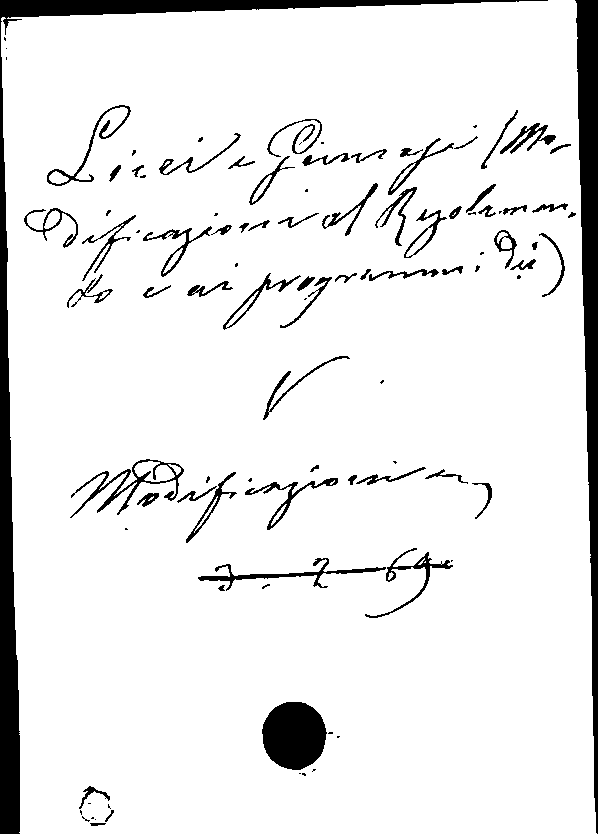 Licei e Ginnasi (Mo-
dificazioni al Regolamen-
to e ai programmi dei)
V
Modificazioni
3. 2 69